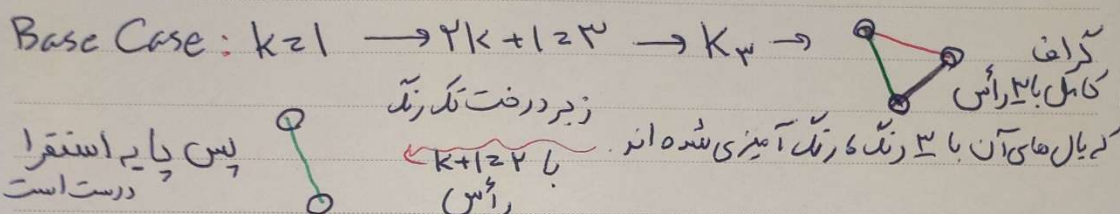 Base Case: k=1 → ۲k+1=۳ → K۳ →
گراف
کامل با ۳ رأس
که یال های آن با ۳ رنگ، رنگ آمیزی شده اند.
زیر درخت تک رنگ
با k+1=۲
رأس
پس پایه استقرا
درست است